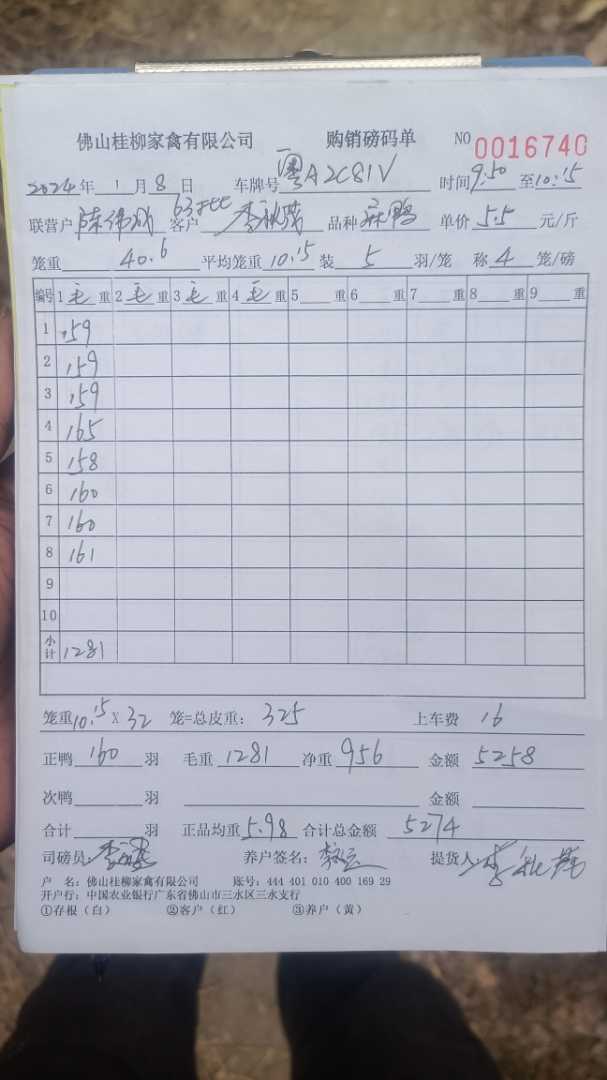 佛山桂柳家禽有限公司 购销磅码单 NO 0016740
2024年 1月 8日 车牌号 粤A2C81V 时间 9:50 至 10:15
联营户 陈伟 63批 客户 李 品种 麻鸭 单价 5.5 元/斤
笼重 40.6 平均笼重 10.15 装 5 羽/笼 称 4 笼/磅
编号 1 毛 重 2 毛 重 3 毛 重 4 毛 重 5 重 6 重 7 重 8 重 9 重
1 159
2 159
3 159
4 165
5 158
6 160
7 160
8 161
9
10
小计 1281
笼重 10.15 X 32 笼=总皮重: 325 上车费 16
正鸭 160 羽 毛重 1281 净重 956 金额 5258
次鸭 羽 金额
合计 羽 正品均重 5.98 合计总金额 5274
司磅员: 李 养户签名: 李 提货人: 李
户 名: 佛山桂柳家禽有限公司 账号: 444 401 010 400 169 29
开户行: 中国农业银行广东省佛山市三水区三水支行
①存根（白） ②客户（红） ③养户（黄）